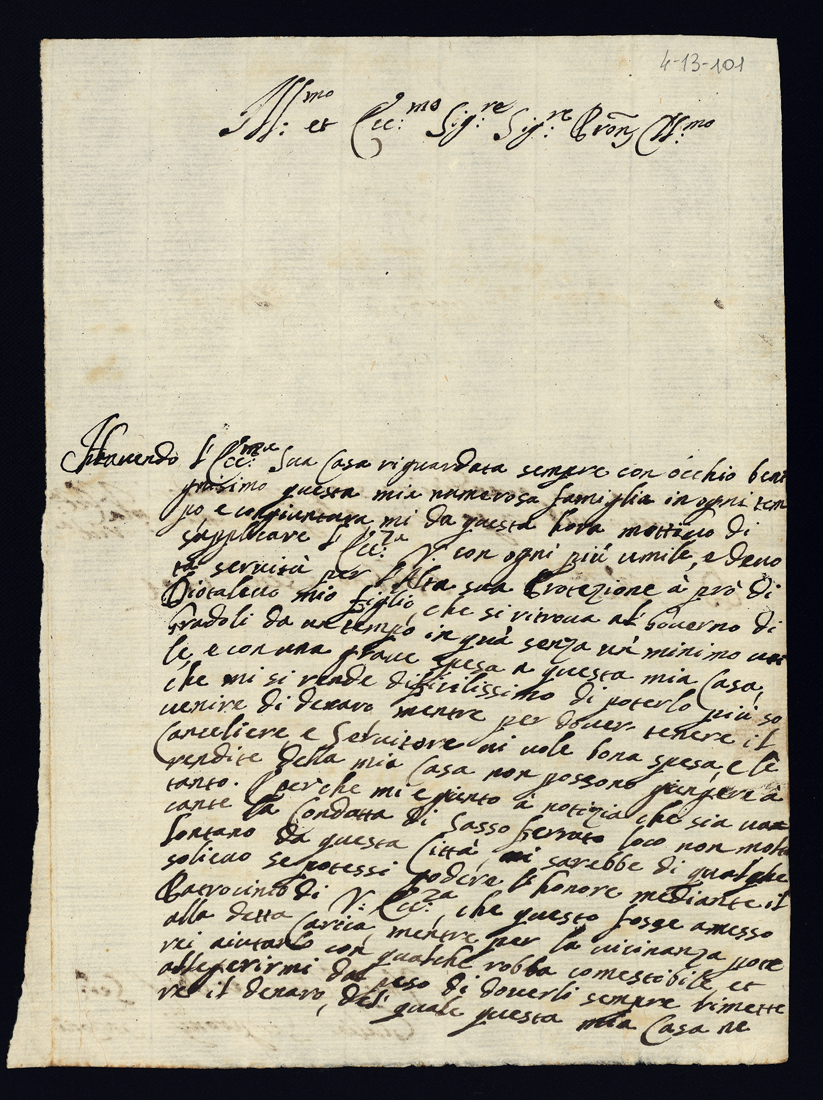 4-13-101
Ill:mo et Ecc:mo Sig:re Sig:re Pron Col:mo
Havendo l'Ecc:ma Sua Casa riguardata sempre con occhio beni
gnissimo questa mia numerosa famiglia in ogni tem
po e congiuntura, mi da questa hora mottivo di
supplicare l'Ecc:za V: con ogni più umile, e devo
ta servitù per l'Alta sua Protezione à prò di
Diotalevo mio figlio, che si ritrova al Governo di
Gradoli da un tempo in quà senza un minimo uti
le, e con una grave spesa a questa mia Casa,
che mi si rende dificilissimo di poterlo più so
venire di denaro mentre per dover tenere il
Canceliere e Servitore vi vole bona spesa, e le
rendite della mia Casa non possono giungere à
tanto. Perche mi e giunto à notizia che sia va
cante la Condotta di Sasso ferrato loco non molto
lontano da questa Città, mi sarebbe di qualche
solievo se potessi godere l'honore mediante il
Patrocinio di V: Ecc:za, che questo fosse amesso
alla detta Carica, mentre per la vicinanza pote
rei aiutarlo con qualche robba comestibile, et
allegerirmi dal peso di doverli sempre rimette
re il denaro, del quale questa mia Casa ne